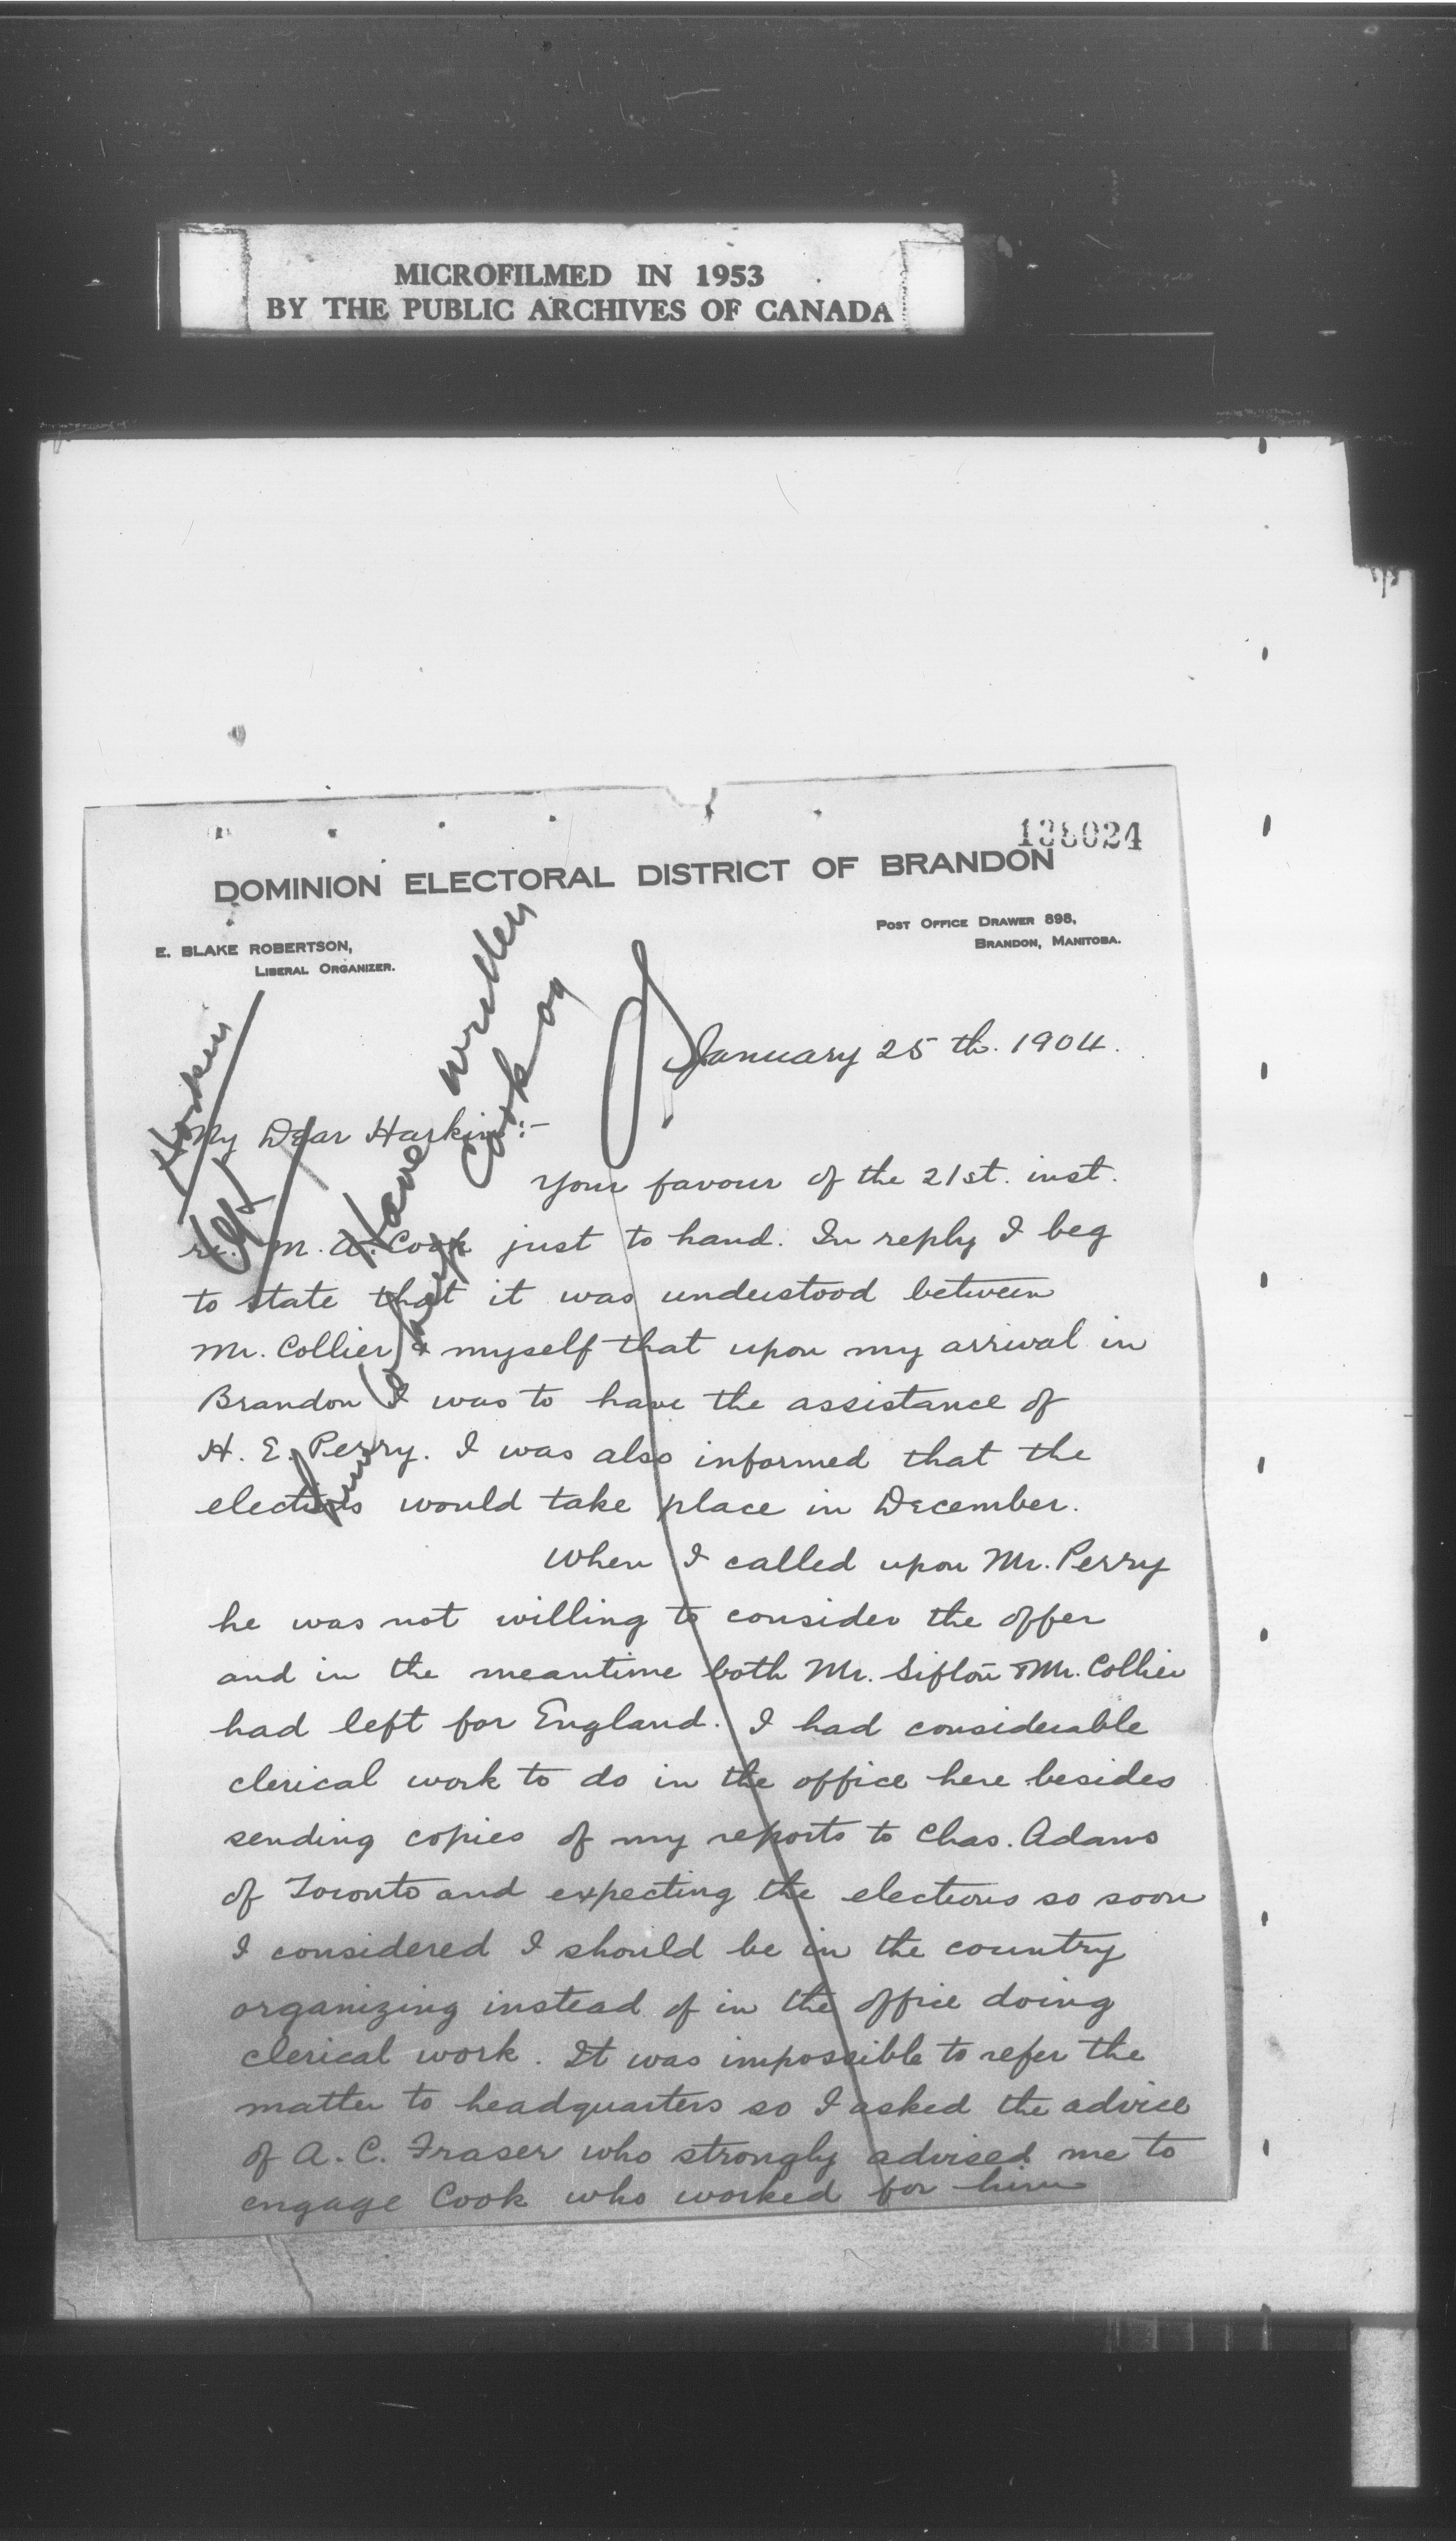 MICROFILMED IN 1953
BY THE PUBLIC ARCHIVES OF CANADA
138024
DOMINION ELECTORAL DISTRICT OF BRANDON
E. BLAKE ROBERTSON,
LIBERAL ORGANIZER.
POST OFFICE DRAWER 898,
BRANDON, MANITOBA.
Have written
Cook
January 25th. 1904.
My Dear Harkin:-
Your favour of the 21st. inst.
re. M. A. Cook just to hand. In reply I beg
to state that it was understood between
Mr. Collier & myself that upon my arrival in
Brandon I was to have the assistance of
H. E. Perry. I was also informed that the
elections would take place in December.
When I called upon Mr. Perry
he was not willing to consider the offer
and in the meantime both Mr. Sifton & Mr. Collier
had left for England. I had considerable
clerical work to do in the office here besides
sending copies of my reports to Chas. Adams
of Toronto and expecting the elections so soon
I considered I should be in the country
organizing instead of in the office doing
clerical work. It was impossible to refer the
matter to headquarters so I asked the advice
of A. C. Fraser who strongly advised me to
engage Cook who worked for him